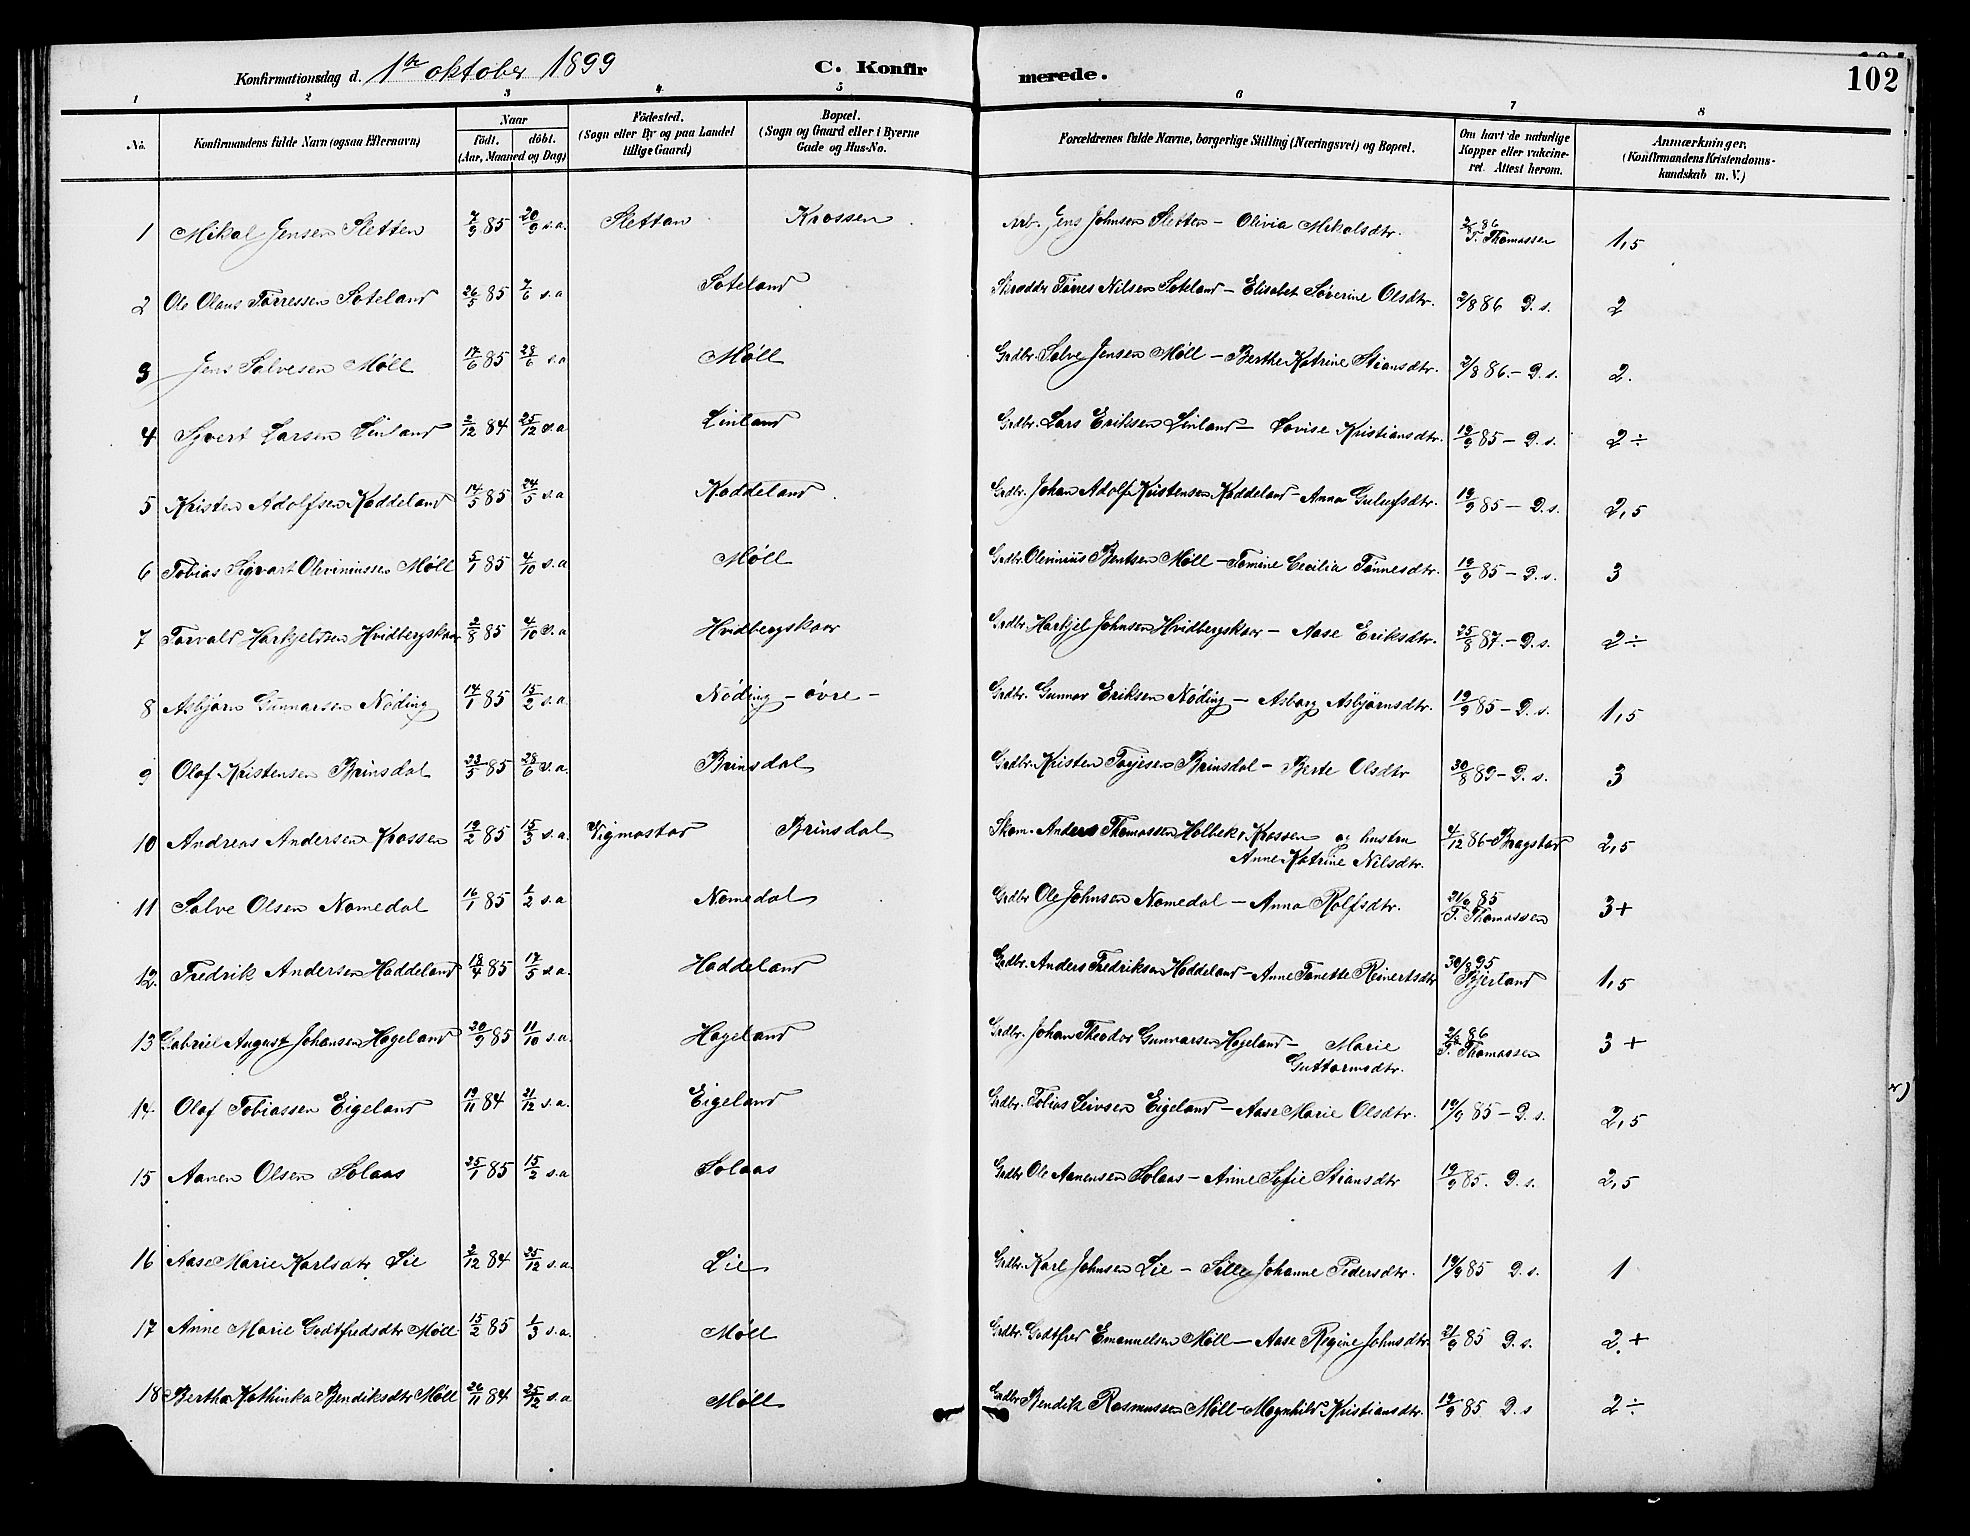 Konfirmationsdag d. 1ste oktober 1899 C. Konfirmerede. 102
1 2 3 4 5 6 7 8
No. Konfirmandens fulde Navn (ogsaa Efternavn) Naar födt. döbt. (Aar, Maaned og Dag) Födested. (Sogn eller By og paa Landet tillige Gaard) Bopæl. (Sogn og Gaard eller i Byerne Gade og Hus-No. Forældrenes fulde Navne, borgerlige Stilling (Næringsvei) og Bopæl. Om havt de naturlige Kopper eller vakcineret. Attest herom. Anmærkninger. (Konfirmandens Kristendomskundskab m. V.)
1 Mikal Jensen Sletten 7/9 85 20/9 s.a. Slettan Krossen Arb. Jens Johnsen Sletten – Olivia Mikalsdtr. T. Thomassen 1,5
2 Ole Olaus Tørressen Soteland 26/5 85 7/6 s.a Soteland Skrædder Tørres Nilsen Soteland – Elisabet Søverine Olsdtr. 2/8 86 D. s. 2
3 Jens Salvesen Møll 17/6 85 28/6 s.a Møll Grdbr. Salve Jensen Møll – Berthe Katrine Stiansdtr. 2/8 86. – D. s. 2.
4 Syvert Larsen Linland 2/12 84 25/12 s.a Linland Grdbr. Lars Eriksen Linland – Lovise Kristiansdtr. 19/9 85 – D. s. 2 ÷
5 Kristen Adolfsen Koddeland 14/5 85 24/5 s.a Koddeland Grdbr. Johan Adolf Kristensen Koddeland – Anna Gulufsdtr. 19/9 85 – D. s. 2,5
6 Tobias Sigvart Oleviniussen Møll 5/1 85 4/10 s.a Møll Grdbr. Olevinius Bentsen Møll – Tomine Cecilia Tønnesdtr. 19/9 85 – D. s. 3
7 Torvald Harkjelsen Hvidbergskaar 2/8 85 4/10 s.a. Hvidbergskaar Grdbr. Harkjel Johnsen Hvidbergskaar – Aase Eriksdtr. 25/8 87. – D. s. 2 ÷
8 Asbjørn Gunnarsen Nøding 14/1 85 15/2 s.a. Nøding – øvre – Grdbr. Gunnar Eriksen Nøding – Asborg Asbjørnsdtr. 19/9 85 – D. s. 1,5
9 Olaf Kristensen Brinsdal 23/5 85 28/6 s.a. Brinsdal Grdbr. Kristen Tarjesen Brinsdal – Berte Olsdtr 30/8 89 – D. s. 3
10 Andreas Andersen Krossen 19/2 85 15/3 s.a. Vigmostad Brinsdal Skom. Anders Thomassen Holbek, Krossen og hustru
Anne Katrine Nilsdtr. 4/12 86 – Bragstad 2,5
11 Salve Olsen Nomedal 16/1 85 1/2 s.a Nomedal Grdbr Ole Johnsen Nomedal – Anna Rolfsdtr. 85 T. Thomassen 3 +
12. Fredrik Andersen Haddeland 18/4 85 17/5 s.a. Haddeland Grdbr. Anders Fredriksen Haddeland – Anne Tonette Reinertsdtr 30/8 95 Bjerland 1,5
13 Gabriel August Johansen Hageland 20/9 85 11/10 s.a. Hageland Grdbr. Johan Theodor Gunnarsen Hageland – Marie
Guttormsdtr. 2/8 86 T. Thomassen 3 +
14. Olaf Tobiassen Eigeland 19/11 84 21/12 s.a. Eigeland Grdbr. Tobias Seivsen Eigeland – Aase Marie Olsdtr. 19/9 85 – D. s. 2,5
15 Aanen Olsen Solaas 25/1 85 15/2 s.a Solaas Grdbr Ole Aanensen Solaas – Anne Sofie Stiansdtr 19/9 85. D. s. 2,5
16 Aase Marie Karlsdtr Lie 2/12 84 25/12 s.a. Lie Grdbr. Karl Johnsen Lie – Sille Johanne Pedersdtr. 19/9 85 D. s. 1
17 Anne Marie Godtfredsdtr Møll 15/2 85 1/3 s.a. Møll Grdbr. Godtfred Emanuelsen Møll – Aase Regine Johnsdtr. 21/9 85 D. s. 2. +
18 Bertha Kathinka Bendiksdtr Møll 26/11 84 25/12 s.a Møll Grdbr Bendik Rasmussen Møll – Magnhild Kristiansdtr. 19/9 85 D. s 2 ÷